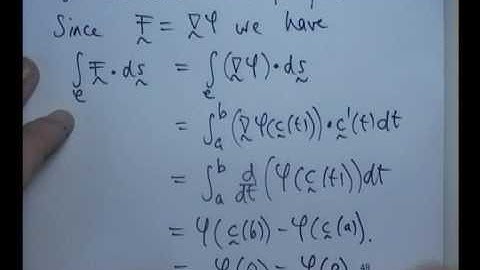 Since F = ∇φ we have
∫_C F · ds = ∫_C (∇φ) · ds
= ∫_a^b (∇φ(c(t))) · c'(t) dt
= ∫_a^b d/dt (φ(c(t))) dt
= φ(c(b)) − φ(c(a)).